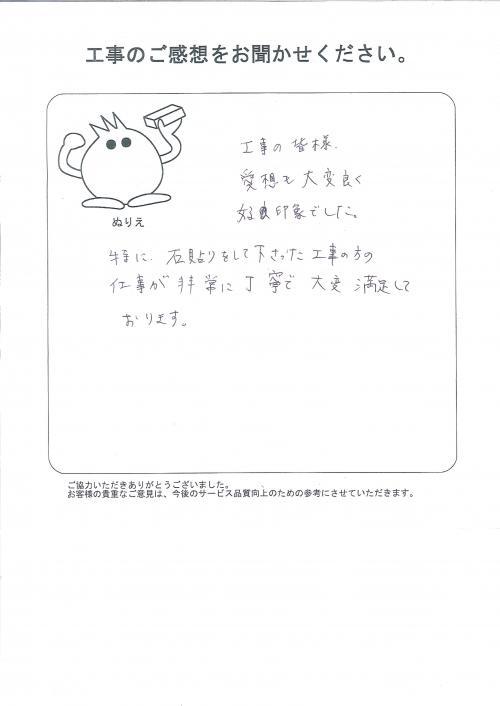 工事のご感想をお聞かせください。
工事の皆様、
愛想も大変良く
好良印象でした。
ぬりえ
特に、石貼りをして下さった工事の方の
仕事が非常に丁寧で大変満足して
おります。
ご協力いただきありがとうございました。
お客様の貴重なご意見は、今後のサービス品質向上のための参考にさせていただきます。